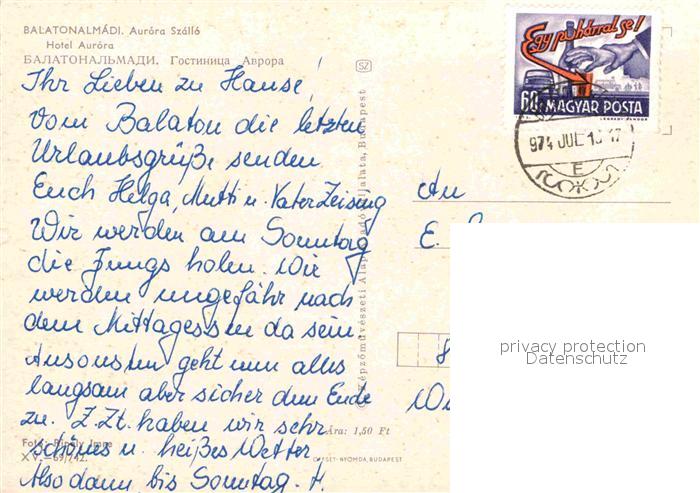 BALATONALMÁDI. Auróra Szálló
Hotel Auróra
БАЛАТОНАЛЬМАДИ. Гостиница Аврора
Ihr Lieben zu Hause!
Vom Balaton die letzten
Urlaubsgrüße senden
Euch Helga, Mutti u. Vater Zeising
Wir werden am Sonntag
die Jungs holen. Wir
werden ungefähr nach
dem Mittagessen da sein.
Ansonsten geht nun alles
langsam aber sicher dem Ende
zu. Z.Zt. haben wir sehr
schönes u. heißes Wetter
Also dann bis Sonntag. H.
Foto: Imre
XV.—69/742.
SZ
Képzőművészeti Alap Budapest
Ára: 1,50 Ft
OFFSET-NYOMDA, BUDAPEST
Egy pohárral se!
60 MAGYAR POSTA
974 JUL 17
E
An
E.
8
privacy protection
Datenschutz